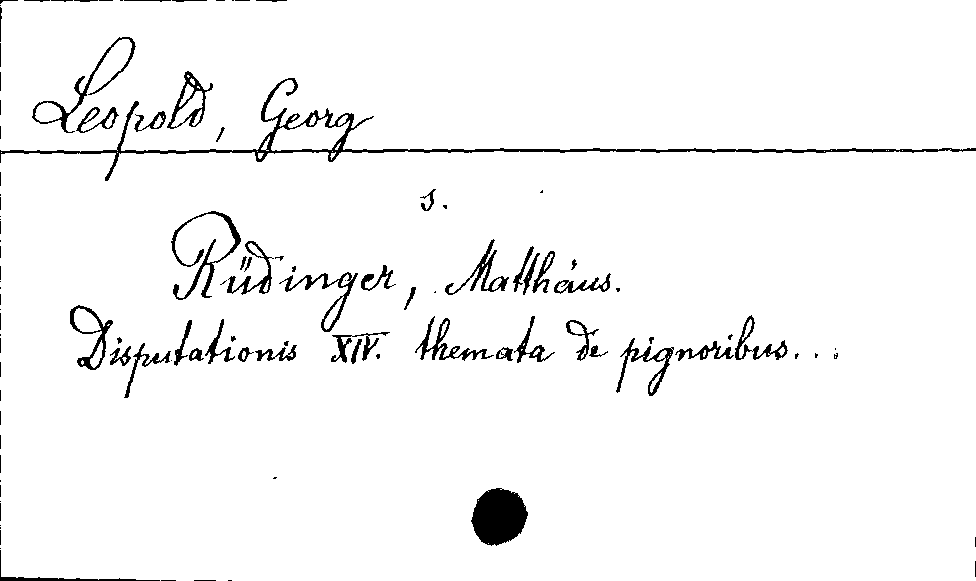 Leopold, Georg
s.
Rüdinger, Matthäus.
Disputationis XIV. themata de pignoribus...